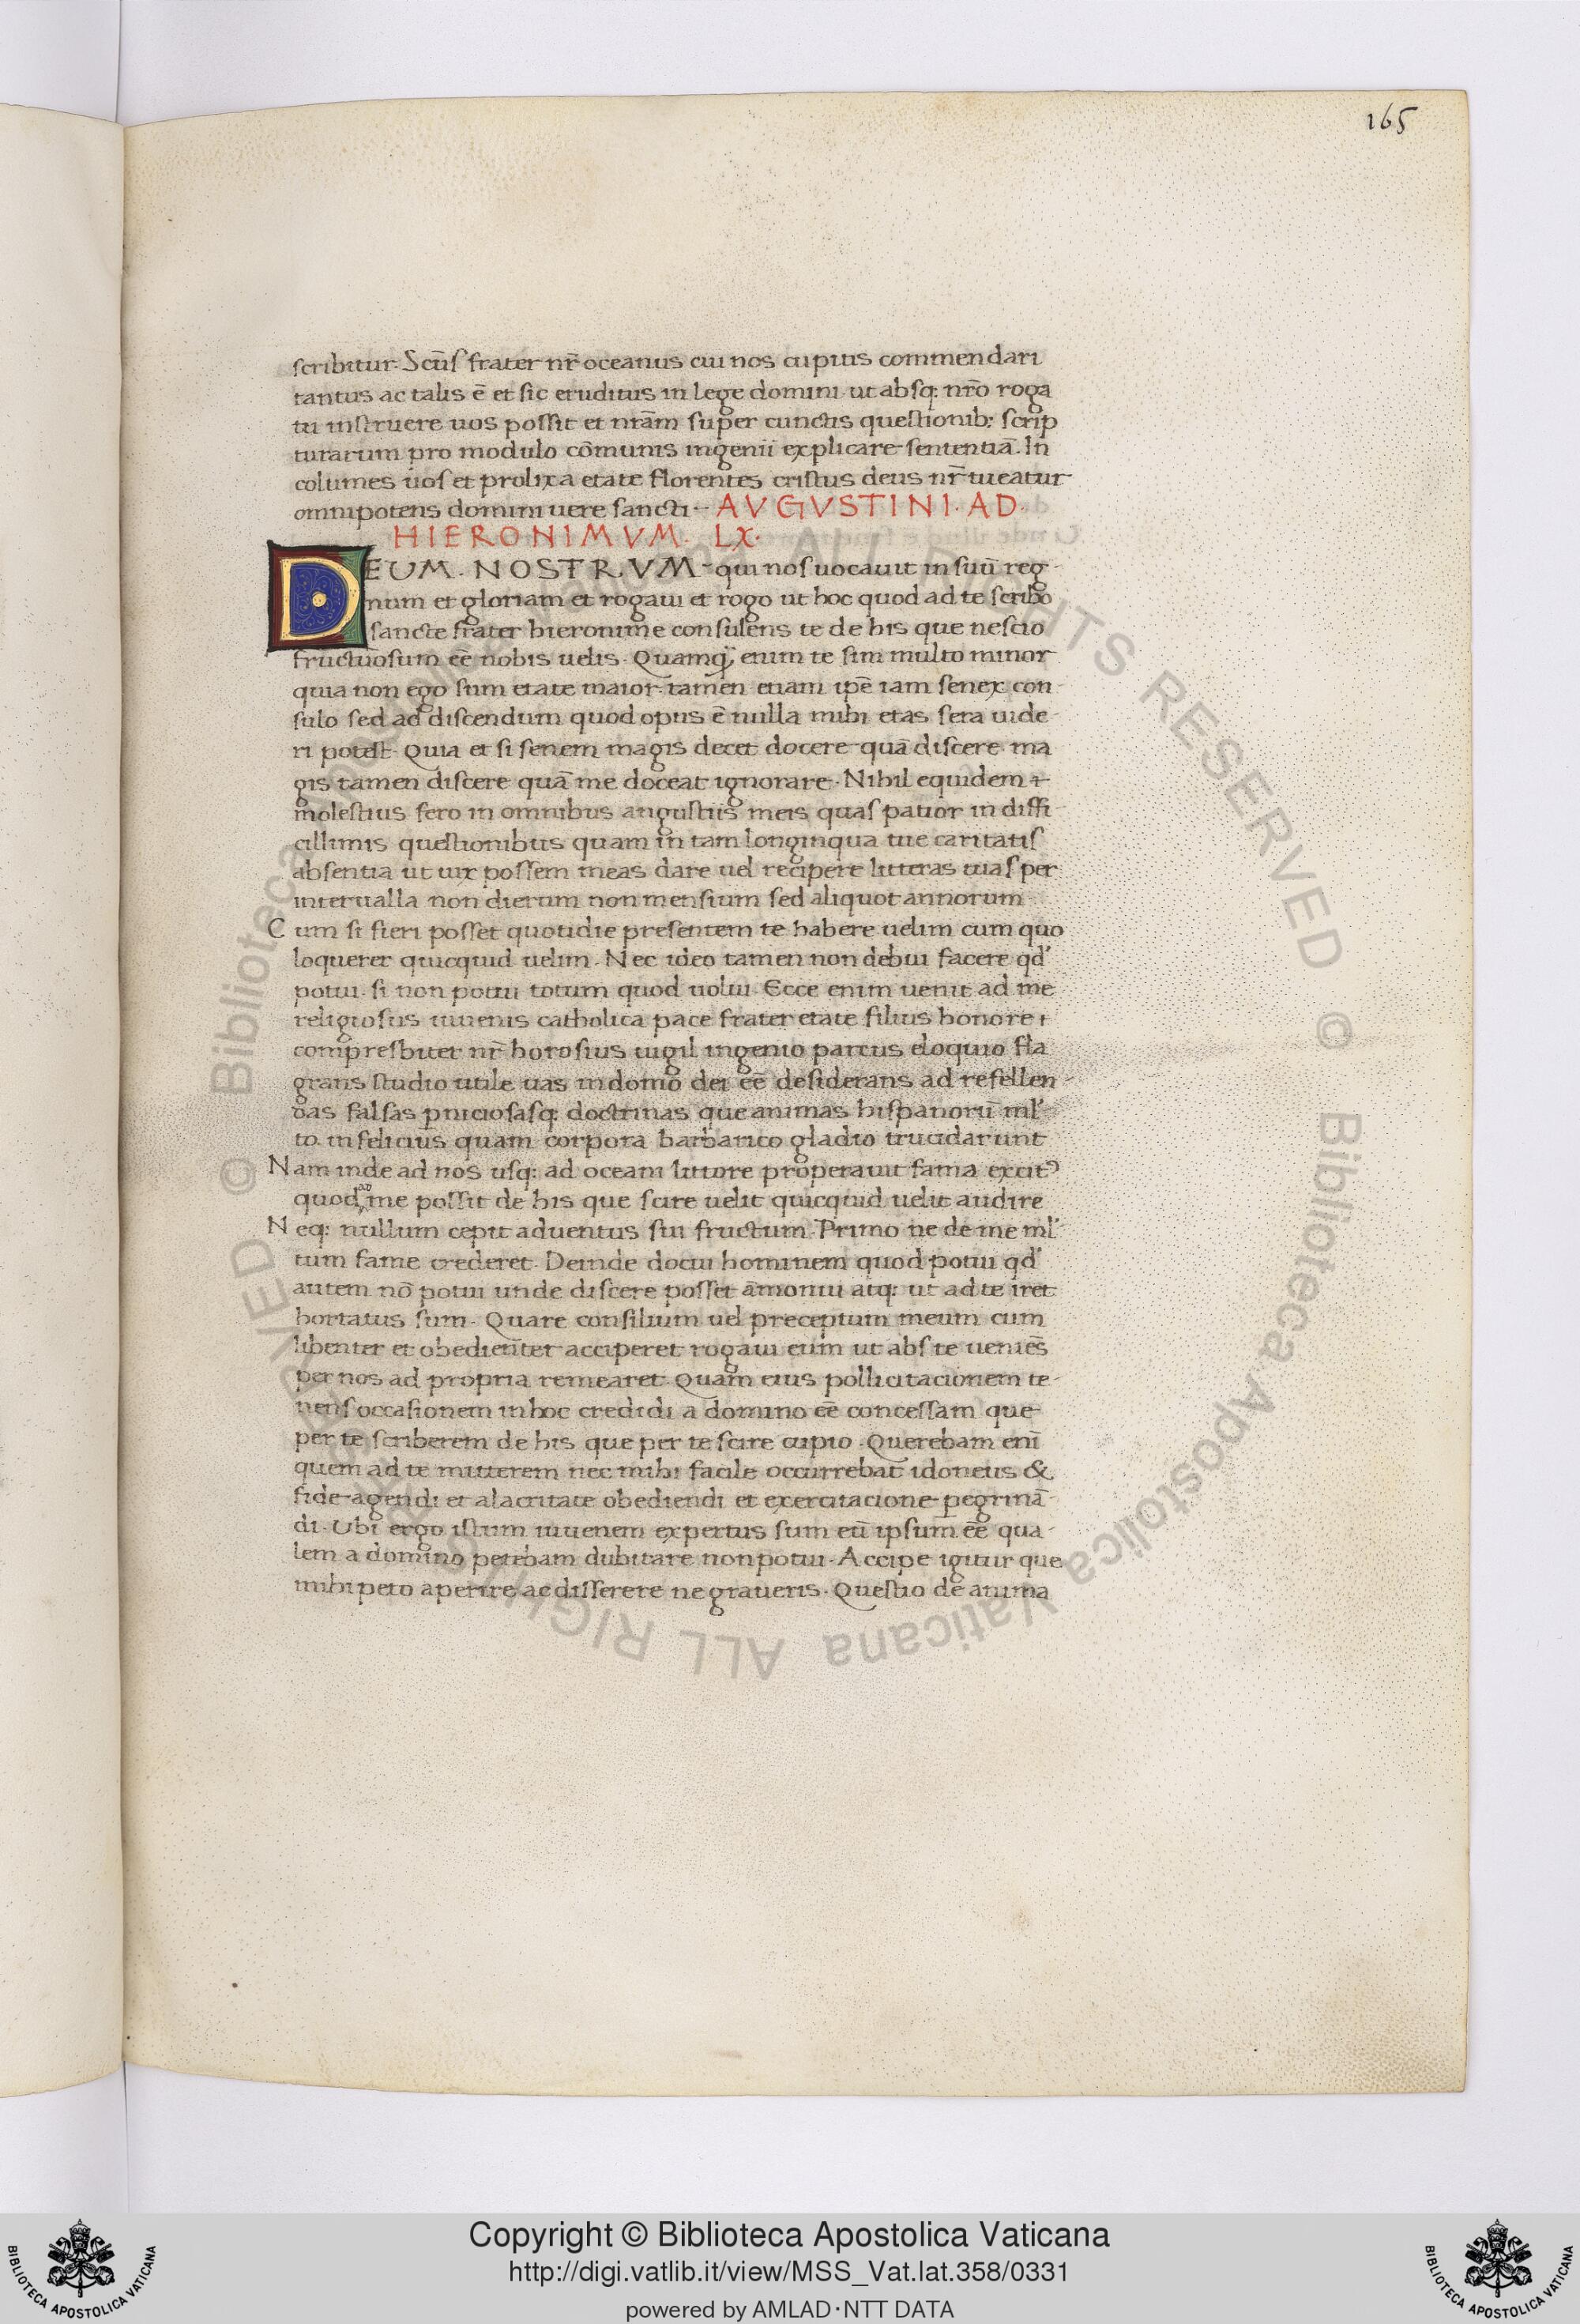 165
scribitur. Scūs frater nr̄ oceanus cui nos cupitis commendari
tantus ac talis ē et sic eruditus in lege domini ut absq; nrō roga
tu instruere uos possit et nrām super cunctis questionib; scrip
turarum pro modulo cōmunis ingenii explicare sententiā. In
columes uos et prolixa etate florentes cristus deus nr̄ tueatur
omnipotens domini uere sancti – AVGVSTINI. AD.
HIERONIMVM. LX.
DEUM. NOSTRVM qui nos uocauit in suū reg
num et gloriam et rogaui et rogo ut hoc quod ad te scribo
sancte frater hieronime consulens te de his que nescio
fructuosum eē nobis uelis. Quamq̃ enim te sim multo minor
quia non ego sum etate maior. tamen etiam ipē iam senex con
sulo sed ad discendum quod opus ē nulla mihi etas sera uide
ri potest. Quia et si senem magis decet docere quā discere. ma
gis tamen discere quā me doceat ignorare. Nihil equidem
molestius fero in omnibus angustiis meis quas patior in diffi
cillimis questionibus quam in tam longinqua tue caritatis
absentia ut uix possem meas dare uel recipere litteras tuas per
interualla non dierum non mensium sed aliquot annorum
Cum si fieri posset quotidie presentem te habere uelim cum quo
loquerer quicquid uelim. Nec ideo tamen non debui facere qd'
potui. si non potui totum quod uolui. Ecce enim uenit ad me
religiosus iuuenis catholica pace frater etate filius honore
compresbiter nr̄ horosius uigil ingenio parcus eloquio fla
grans studio utile uas in domo dei eē desiderans ad refellen
das falsas pniciosasq; doctrinas que animas hispanorū ml'
to infelicius quam corpora barbarico gladio trucidarunt
Nam inde ad nos usq; ad oceani littore properauit fama excit9
quod a me possit de his que scire uelit quicquid uelit audire
Neq; nullum cepit aduentus sui fructum. Primo ne de me ml'
tum fame crederet. Deinde docui hominem quod potui qd'
autem nō potui unde discere posset āmonui atq; ut ad te iret
hortatus sum. Quare consilium uel preceptum meum cum
libenter et obedienter acciperet rogaui eum ut abs te ueniēs
per nos ad propria remearet. Quam eius pollicitacionem te
nens occasionem in hoc credidi a domino eē concessam que
per te scriberem de his que per te scire cupio. Querebam enī
quem ad te mitterem nec mihi facile occurrebat idoneus &
fide agendi et alacritate obediendi et exercitacione pegrinā
di. Ubi ergo istum iuuenem expertus sum eū ipsum eē qua
lem a domino petebam dubitare non potui. Accipe igitur que
mihi peto aperire ac disserere ne graueris. Questio de anima
© Biblioteca Apostolica Vaticana ALL RIGHTS RESERVED © Biblioteca Apostolica Vaticana ALL RIGHTS RESERVED
BIBLIOTECA APOSTOLICA VATICANA
Copyright © Biblioteca Apostolica Vaticana
http://digi.vatlib.it/view/MSS_Vat.lat.358/0331
powered by AMLAD·NTT DATA
BIBLIOTECA APOSTOLICA VATICANA